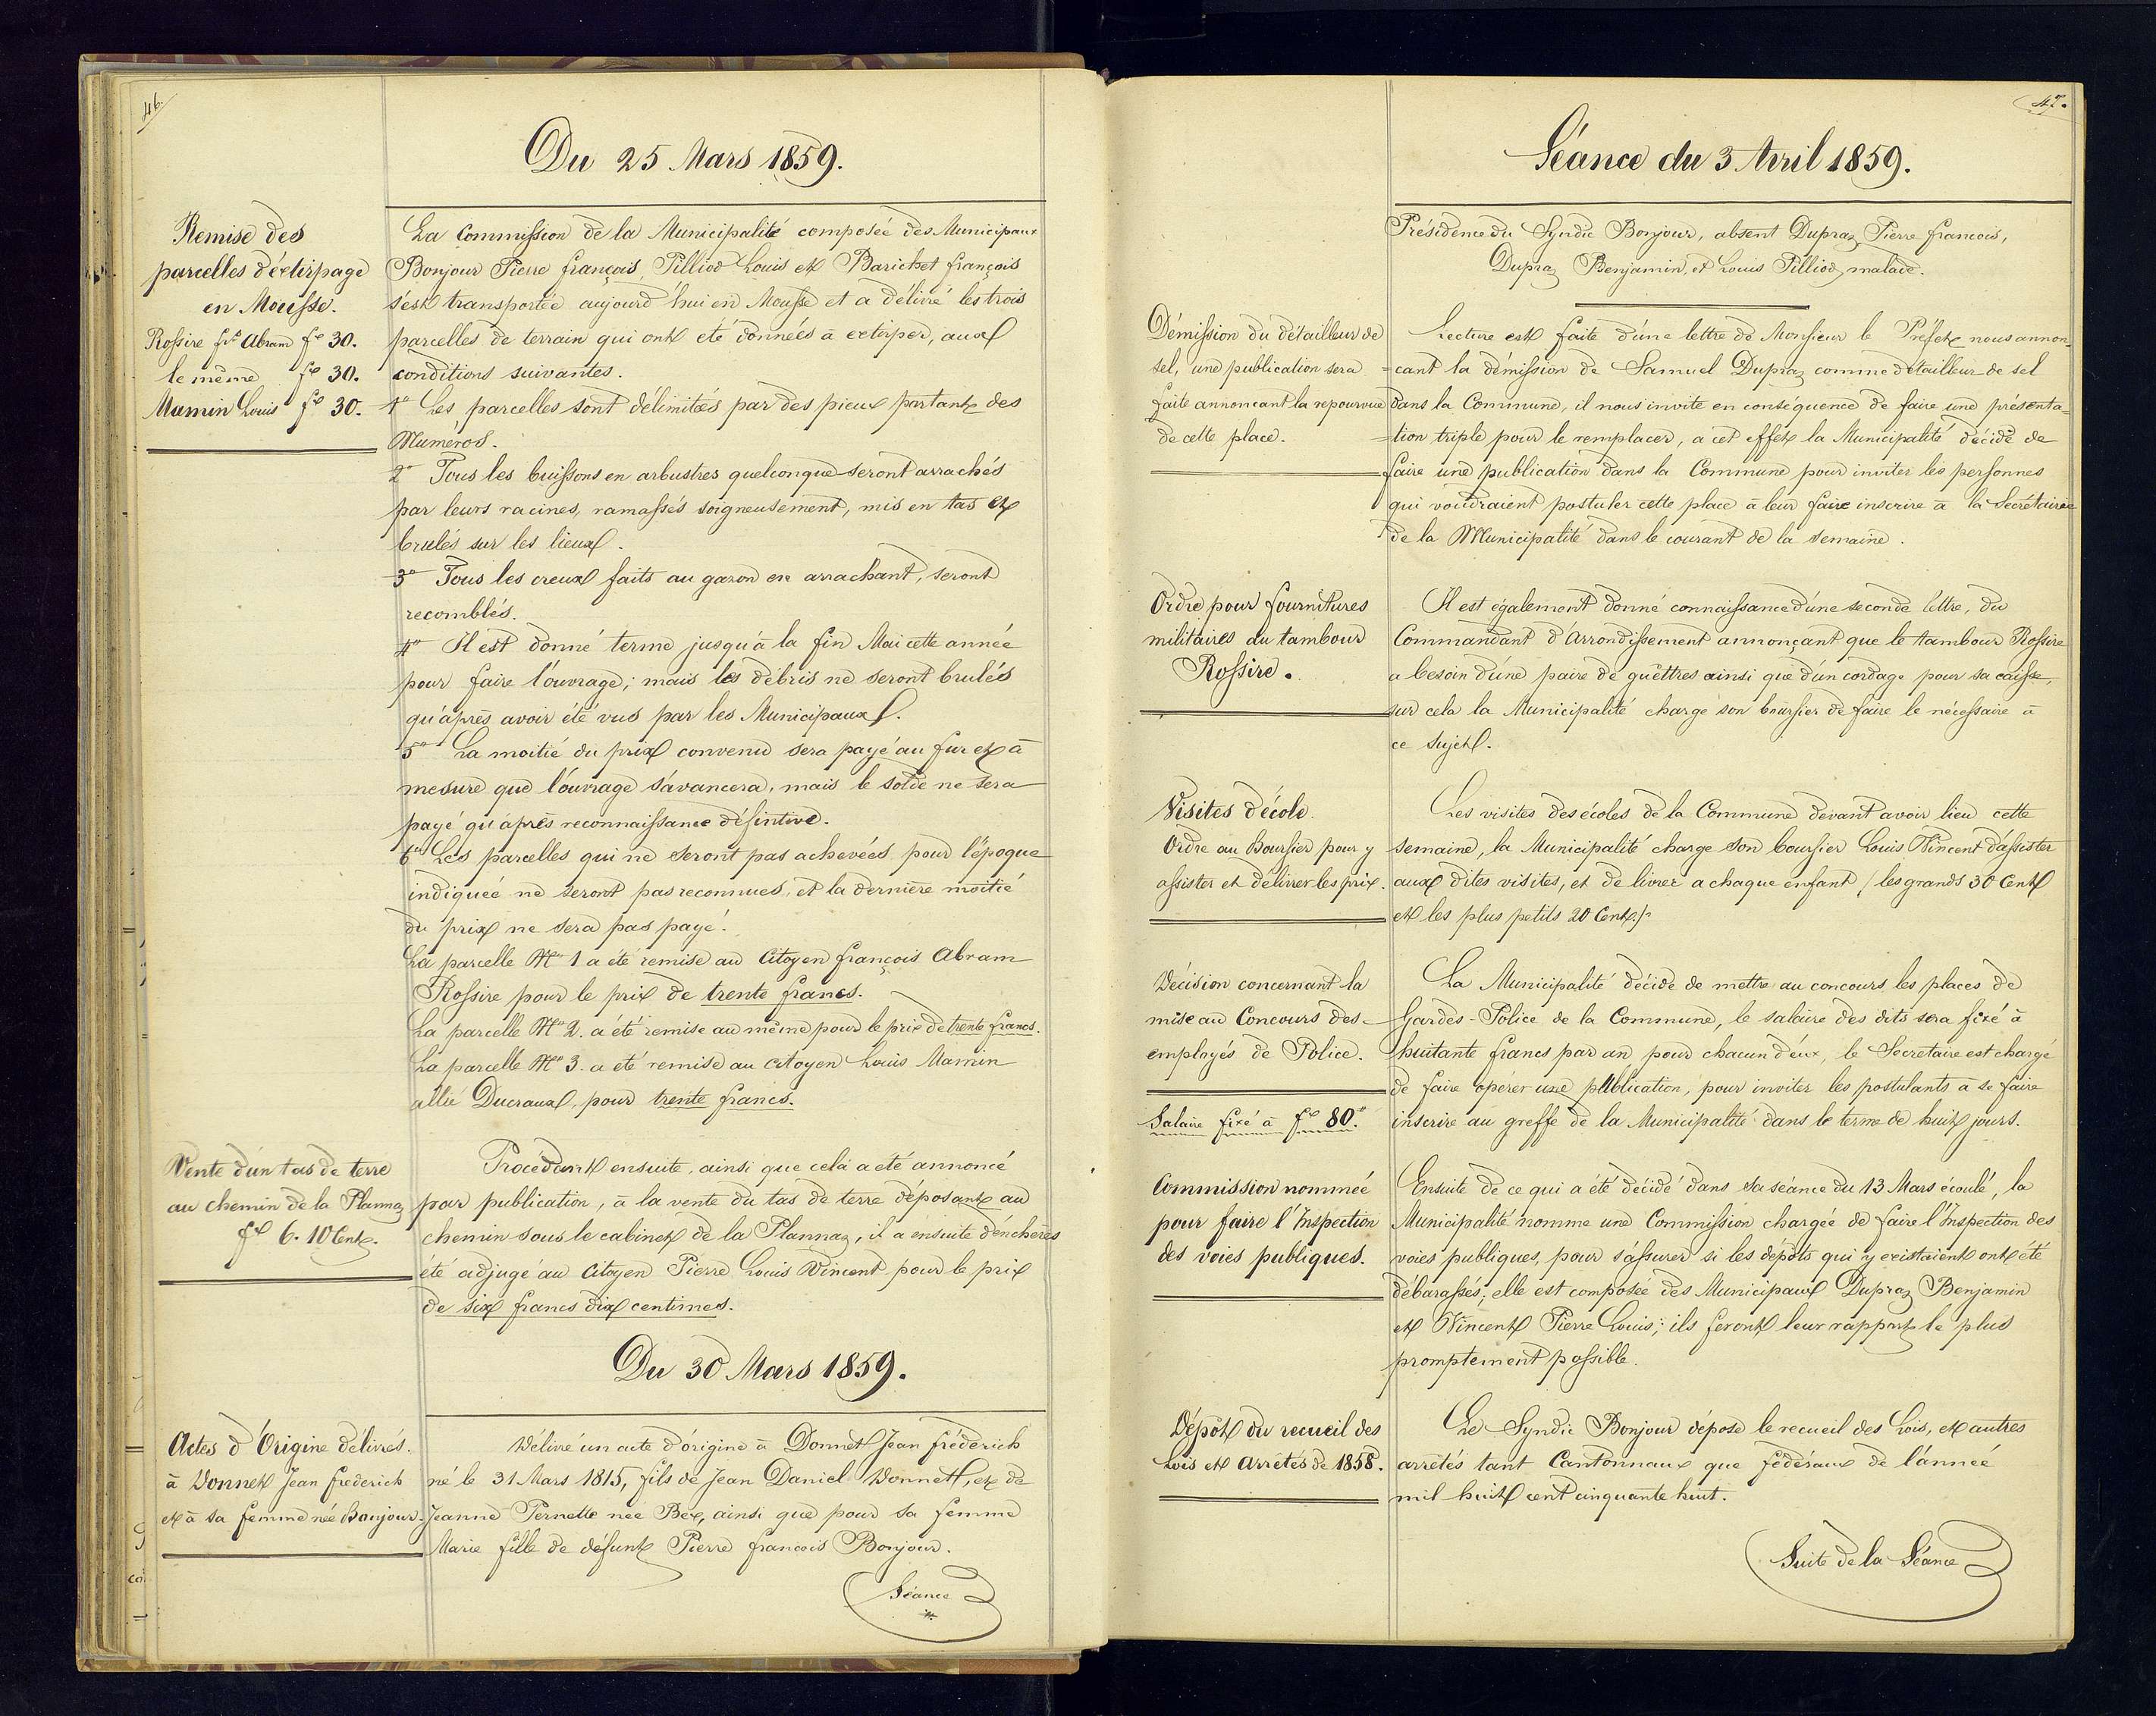 46.
Du 25 Mars 1859.
Remise des
parcelles d'éxtirpage
en Mousse.
Rossire frs Abram fcs 30.
le même fcs 30.
Mamin Louis fcs 30.
La Commission de la Municipalité composée des Municipaux
Bonjour Pierre françois, Pilliod Louis et Barichet françois
s'est transportée aujourd'hui en Mousse et a délivré les trois
parcelles de terrain qui ont été données à extirper, aux
conditions suivantes.
1o Les parcelles sont délimitées par des pieux portant des
Numéros.
2o Tous les buissons en arbustres quelconque seront arrachés
par leurs racines, ramassés soigneusement, mis en tas et
brulés sur les lieux.
3o Tous les creux faits au gazon en arrachant, seront
recomblés.
4o Il est donné terme jusqu'à la fin Mai cette année
pour faire l'ouvrage; mais les débris ne seront brulés
qu'après avoir été vus par les Municipaux.
5o La moitié du prix convenu sera payé au fur et à
mesure que l'ouvrage s'avancera, mais le solde ne sera
payé qu'après reconnaissance désintive.
6o Les parcelles qui ne seront pas achevées pour l'époque
indiqueé ne seront pas reconnues, et la dernière moitié
du prix ne sera pas payé.
La parcelle No 1 a été remise au Citoyen françois Abram
Rossire pour le prix de trente francs.
La parcelle No 2. a été remise au même pour le prix de trente francs.
La parcelle No 3. a été remise au citoyen Louis Mamin
allié Ducraux, pour trente francs.
Vente d'un tas de terre
au chemin de la Plannaz
fcs 6. 10 Cent.
Procédant ensuite, ainsi que cela a été annoncé
par publication, à la vente du tas de terre déposant au
chemin sous le cabinet de la Plannaz, il a ensuite d'enchères
été adjugé au Citoyen Pierre Louis Vincent pour le prix
de six francs dix centimes.
Du 30 Mars 1859.
Actes d'Origine délivrés.
à Donnet Jean frederich
et à sa femme née Bonjour.
Délivré un acte d'origine à Donnet Jean fréderich
né le 31 Mars 1815, fils de Jean Daniel Donnet, et de
Jeanne Pernette née Bex, ainsi que pour sa femme
Marie fille de défunt Pierre francois Bonjour.
Séance
47.
Séance du 3 Avril 1859.
Présidence du Syndic Bonjour, absent Dupraz Pierre francois,
Dupraz Benjamin, et Louis Pilliod, malade.
Démission du détailleur de
sel, une publication sera
faite annoncant la repourvue
de cette place.
Lecture est faite d'une lettre de Monsieur le Préfet nous annon=
=cant la démission de Samuel Dupraz comme détailleur de sel
dans la Commune, il nous invite en conséquence de faire une présenta=
=tion triple pour le remplacer, à cet effet la Municipalité décide de
faire une publication dans la Commune pour inviter les personnes
qui voudraient postuler cette place à leur faire inscrire à la Secrétairie
de la Municipalité dans le courant de la semaine.
Ordre pour fournitures
militaires au tambour
Rossire.
Il est également donné connaissance d'une seconde lettre, du
Commandant d'Arrondissement annonçant que le tambour Rossire
a besoin d'une paire de guêttres ainsi que d'un cordage pour sa caisse,
sur cela la Municipalité charge son boursier de faire le nécessaire à
ce sujet.
Visites d'école.
Ordre au Boursier pour y
assister et délivrer les prix.
Les visites des écoles de la Commune devant avoir lieu cette
semaine, la Municipalité charge son boursier Louis Vincent d'assister
aux dites visites, et de livrer a chaque enfant / les grands 30 Cent
et les plus petits 20 Cent./.
Décision concernant la
mise au Concours des
employés de Police.
Salaire fixé à fcs 80.
La Municipalité décide de mettre au concours les places de
Gardes-Police de la Commune, le salaire des dits sera fixé à
huitante francs par an pour chacun d'eux, le Secretaire est chargé
de faire opérer une publication, pour inviter les postulants à se faire
inscrire au greffe de la Municipalité dans le terme de huit jours.
Commission nommée
pour faire l'Inspection
des voies publiques.
Ensuite de ce qui a été décidé dans sa séance du 13 Mars écoulé, la
Municipalité nomme une Commission chargée de faire l'Inspection des
voies publiques, pour s'assurer si les dépôts qui y existaient ont été
débarassés; elle est composée des Municipaux Dupraz Benjamin
et Vincent Pierre Louis; ils feront leur rapport le plus
promptement possible.
Dépôt du recueil des
Lois et Arrêtés de 1858.
Le Syndic Bonjour dépose le recueil des Lois, et autres
arrêtés tant Cantonnaux que fédéraux de l'année
mil huit cent cinquante huit.
Suite de la Séance